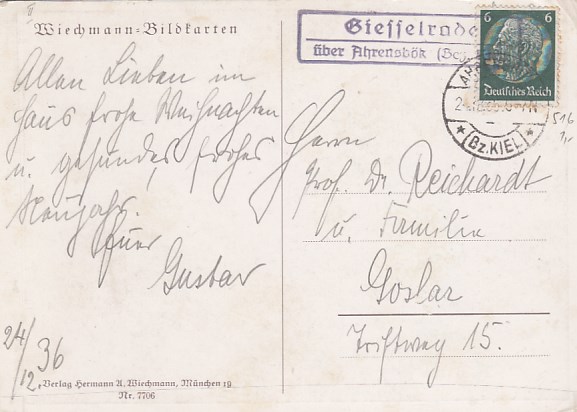 Wiechmann-Bildkarten
Giesselrade
über Ahrensbök (Bez
6 6
Deutsches Reich
AH
(Bz. KIEL)
516
Allen Lieben im
Haus frohe Weihnachten
u. gesundes, frohes
Neujahr.
Euer
Gustav
24/12 36
Herrn
Prof. Dr. Reichardt
u. Familie
Goslar
Triftweg 15.
Verlag Hermann A. Wiechmann, München 19
Nr. 7706